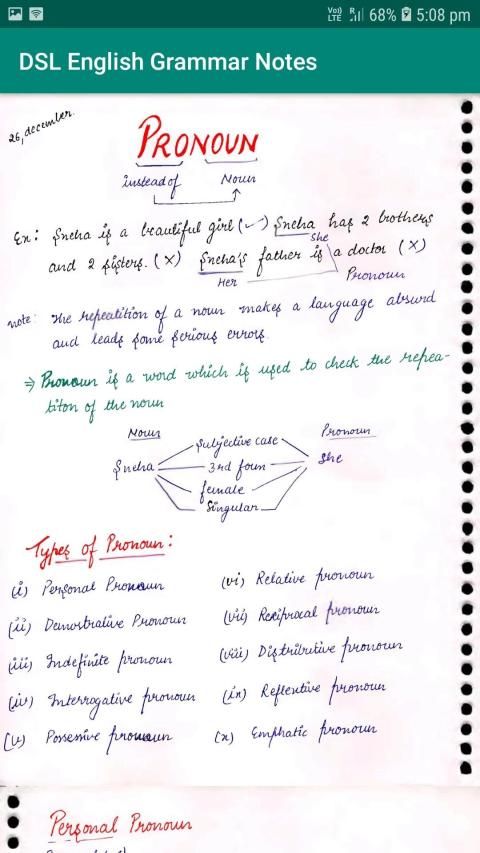 68% 5:08 pm
DSL English Grammar Notes
26, december.
PRONOUN
instead of Noun
Ex: Sneha is a beautiful girl (✓) Sneha has 2 brothers
She
and 2 sisters. (X) Sneha's father is a doctor (X)
Her Pronoun
note: the repeatition of a noun makes a language absurd
and leads some serious errors.
⇒ Pronoun is a word which is used to check the repea-
titon of the noun
Noun Pronoun
Subjective case
Sneha 3rd foun She
female
Singular
Types of Pronoun:
(i) Personal Pronoun (vi) Relative pronoun
(ii) Demostrative Pronoun (vii) Reciprocal pronoun
(iii) Indefinite pronoun (viii) Distributive pronoun
(iv) Interrogative pronoun (ix) Reflentive pronoun
(v) Possessive pronoun (x) Emphatic pronoun
Personal Pronoun